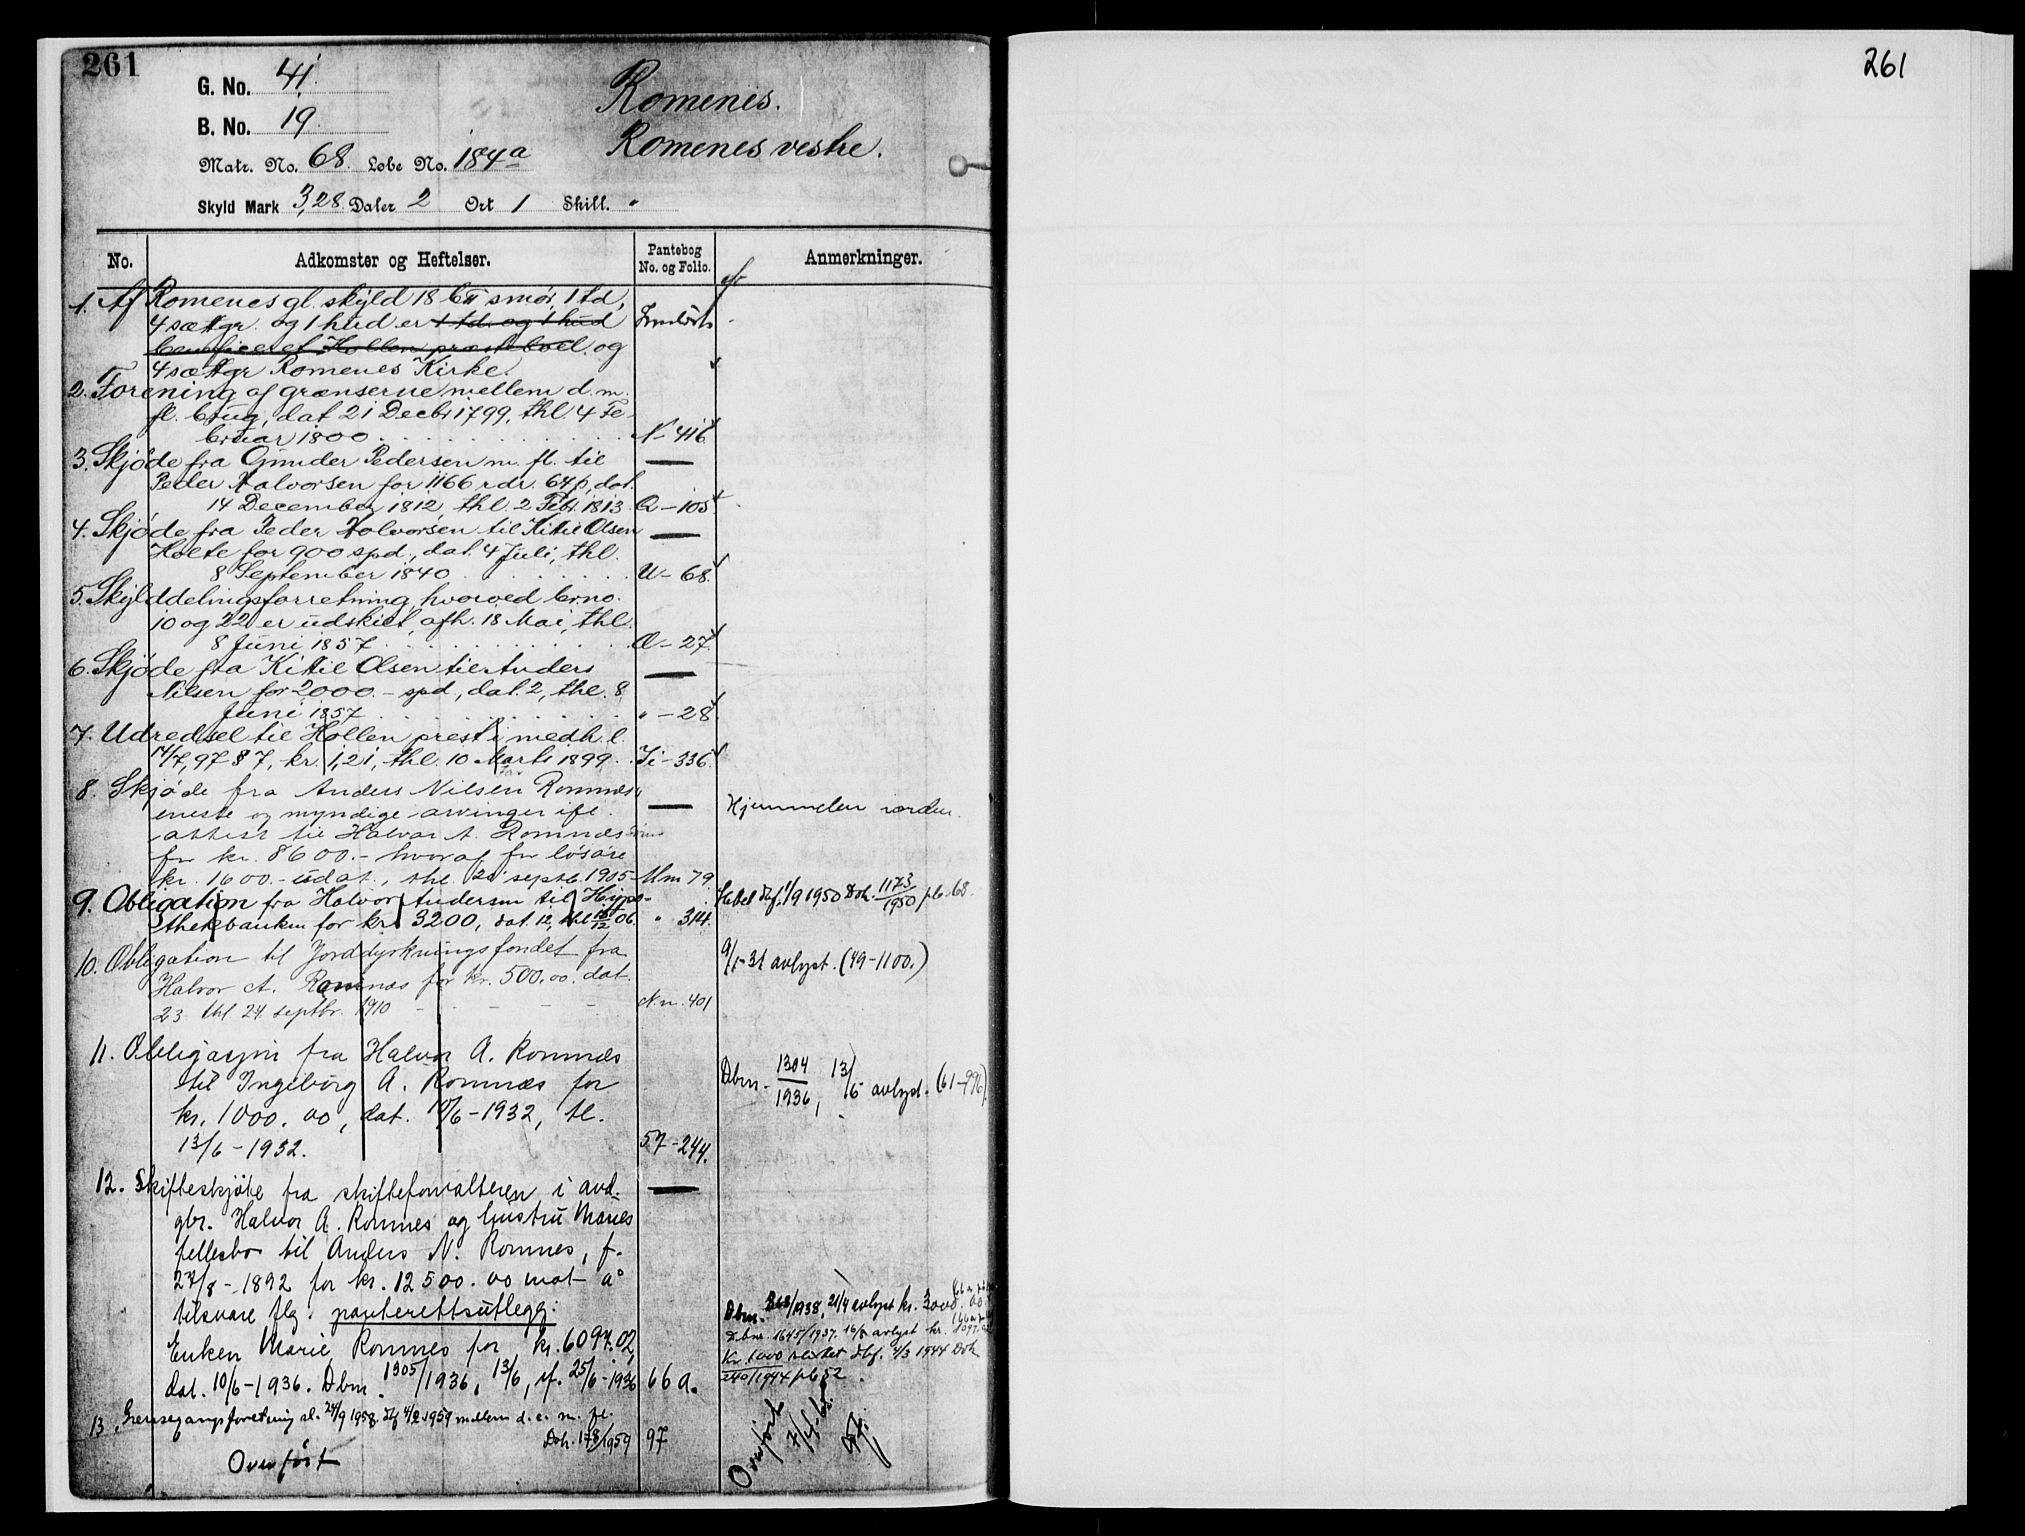 261
G. No. 41.
B. No. 19.
Matr. No. 68. Løbe No. 184a
Skyld Mark 3,28. Daler 2 Ort 1 Skill. "
Romenes.
Romenes vestre.
No. Adkomster og Heftelser. Pantebog No. og Folio. Anmerkninger.
1. Af Romenes gl. skyld 18 b℔ smør, 1 td,
4 sættgr. og 1 hud er 1 td. og 1 hud
beneficeret Hollen præstebol. og
4 sættgr Romenes Kirke.
2. Forening af grænserne mellem d. m.
fl. brug, dat. 21 Decbr 1799, thl. 4 Fe-
bruar 1800. N- 416
3. Skjøde fra Gunder Pedersen m. fl. til
Peder Halvorsen for 1166 rdr. 64 β, dat.
14 December 1812, thl. 2 Febr. 1813. Q- 105
4. Skjøde fra Peder Halvorsen til Kittil Olsen
Holte for 900 spd., dat. 4 Juli, thl.
8 September 1840 U- 68.
5. Skylddelingsforretning, hvorved brno.
10 og 22 er udskilt, afh. 18 Mai, thl.
8 Juni 1857 Æ- 27.
6. Skjøde fra Kittil Olsen til Anders
Nilsen for 2000.- spd, dat. 2, thl. 8
Juni 1857 " - 28
7. Udredsel til Hollen prest i medh. l.
14/7, 97 § 7, kr. 1,21, thl. 10 Marts 1899. Ii- 336.
8. Skjøde fra Anders Nilsen Romnæs's
eneste og myndige arvinger ifl.
attest til Halvor A. Romnæs
for kr. 8600.- hvoraf for løsøre
kr. 1600.- udat., thl. 20 septb. 1905 Mm 79.
Hjemmelen i orden.
9. Obligation fra Halvor Andersen til Hypo-
thekbanken for kr. 3200, dat. 12, thl 15/12 06. " 314.
Slettet dbf. 1/9 1950 Dok. 1173/1950 pb. 68.
10. Obligation til Jorddyrkningsfondet fra
Halvor A. Romnæs for kr. 500,00. dat
23. thl 24. septbr. 1910 N.n. 401
9/1-31 avlyst. (49-1100.)
11. Obligasjon fra Halvor A. Romnæs
til Ingeborg A. Romnæs for
kr. 1000.00, dat. 10/6-1932, tl.
13/6-1932. 57-244.
Dbnr. 1304/1936, 13/6 avlyst. (61-996).
12. Skifteskjøte fra skifteforvalteren i avd.
gbr. Halvor A. Romnes og hustru Maries
fellesbo til Anders N. Romnes, f.
27/8-1892 for kr. 12500.00 mot å
tilsvare flg. panterettsutlegg:
Enken Marie Romnes for kr. 6097.02,
Dat. 10/6-1936. Dbnr. 1305/1936, 13/6, jf. 25/6-1936 66 a.
Dbnr. 368/1938, 21/4 avlyst kr. 3000.00.
Dbnr. 1645/1937. 16/8 avlyst kr. 2097.02
Kr. 1000 slettet dbf. 4/3 1944 Dok
240/1944 pb 52
13. Grensegangsforretning al. 24/9 1958. dbf 4/2 1959 mellem d. e. m. fl.
Dok. 178/1959 97
Overført
Overført
261